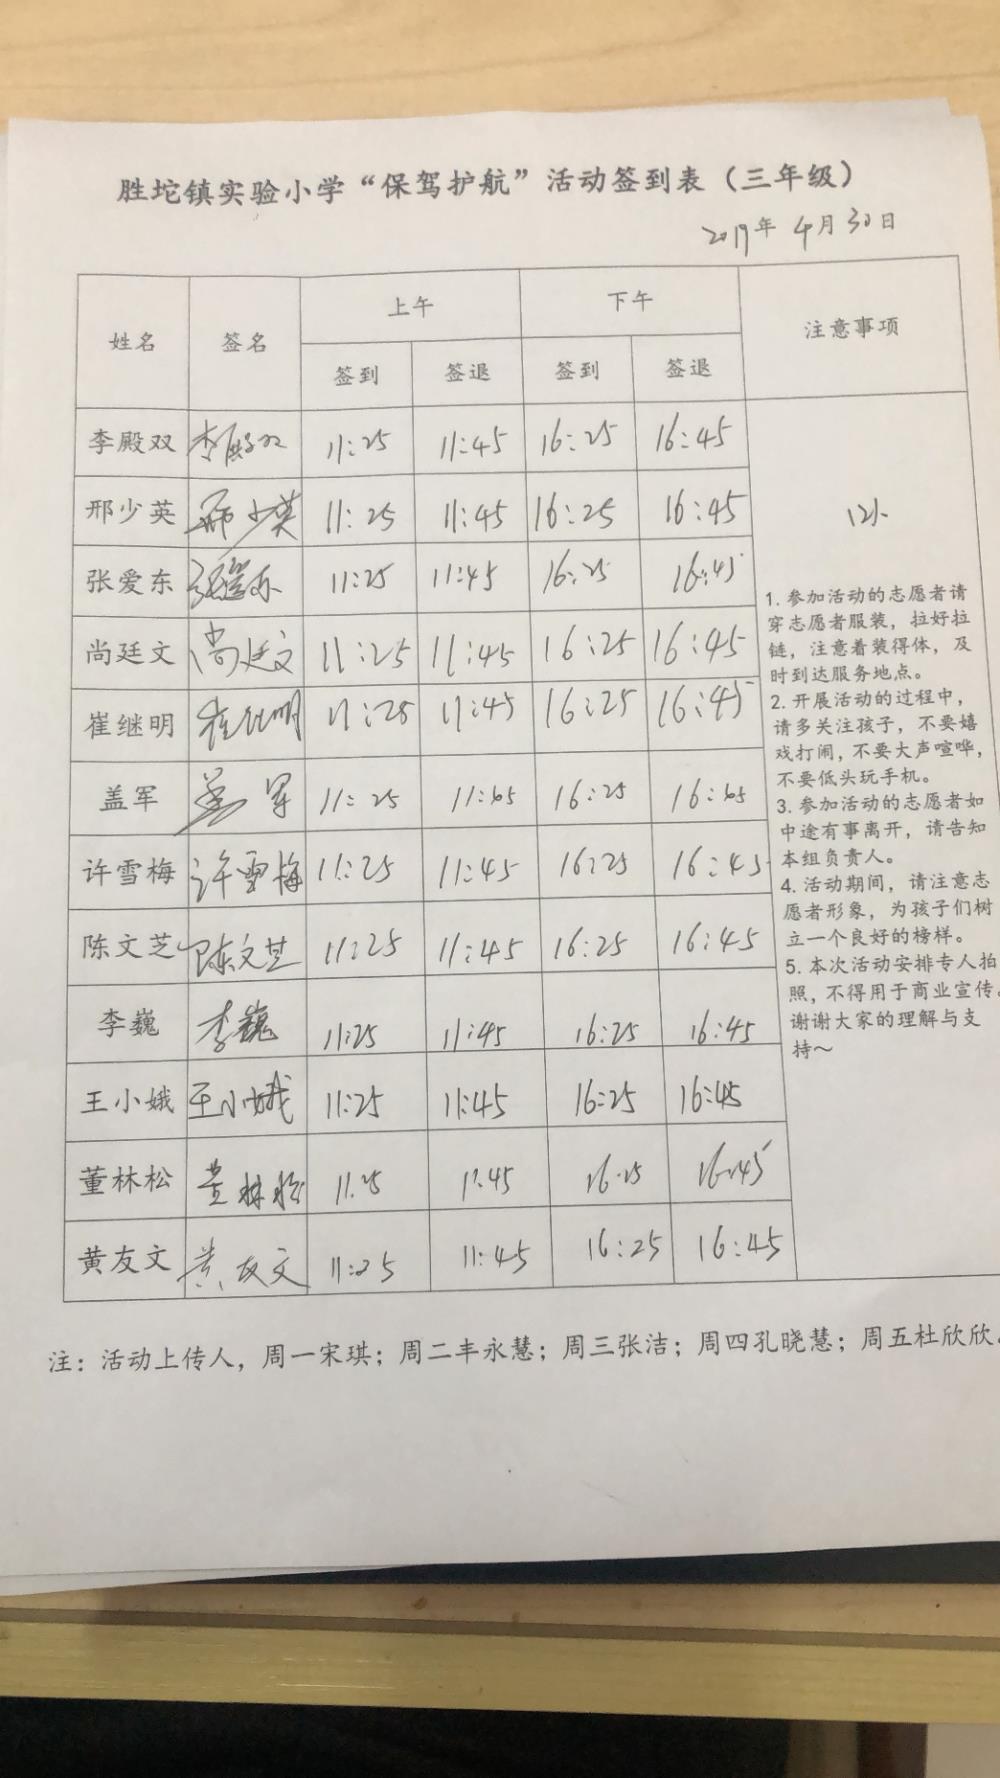 胜坨镇实验小学“保驾护航”活动签到表（三年级）
2019年 4月30日
姓名 签名 上午 下午 注意事项
签到 签退 签到 签退
李殿双 李殿双 11:25 11:45 16:25 16:45
邢少英 邢少英 11:25 11:45 16:25 16:45
张爱东 张爱东 11:25 11:45 16:25 16:45
尚廷文 尚廷文 11:25 11:45 16:25 16:45
崔继明 崔继明 11:25 11:45 16:25 16:45
盖军 盖军 11:25 11:45 16:25 16:45
许雪梅 许雪梅 11:25 11:45 16:25 16:45
陈文芝 陈文芝 11:25 11:45 16:25 16:45
李巍 李巍 11:25 11:45 16:25 16:45
王小娥 王小娥 11:25 11:45 16:25 16:45
董林松 董林松 11:25 11:45 16:25 16:45
黄友文 黄友文 11:25 11:45 16:25 16:45
1. 参加活动的志愿者请
穿志愿者服装，拉好拉
链，注意着装得体，及
时到达服务地点。
2. 开展活动的过程中，
请多关注孩子，不要嬉
戏打闹，不要大声喧哗，
不要低头玩手机。
3. 参加活动的志愿者如
中途有事离开，请告知
本组负责人。
4. 活动期间，请注意志
愿者形象，为孩子们树
立一个良好的榜样。
5. 本次活动安排专人拍
照，不得用于商业宣传。
谢谢大家的理解与支
持～
注：活动上传人，周一宋琪；周二丰永慧；周三张洁；周四孔晓慧；周五杜欣欣。